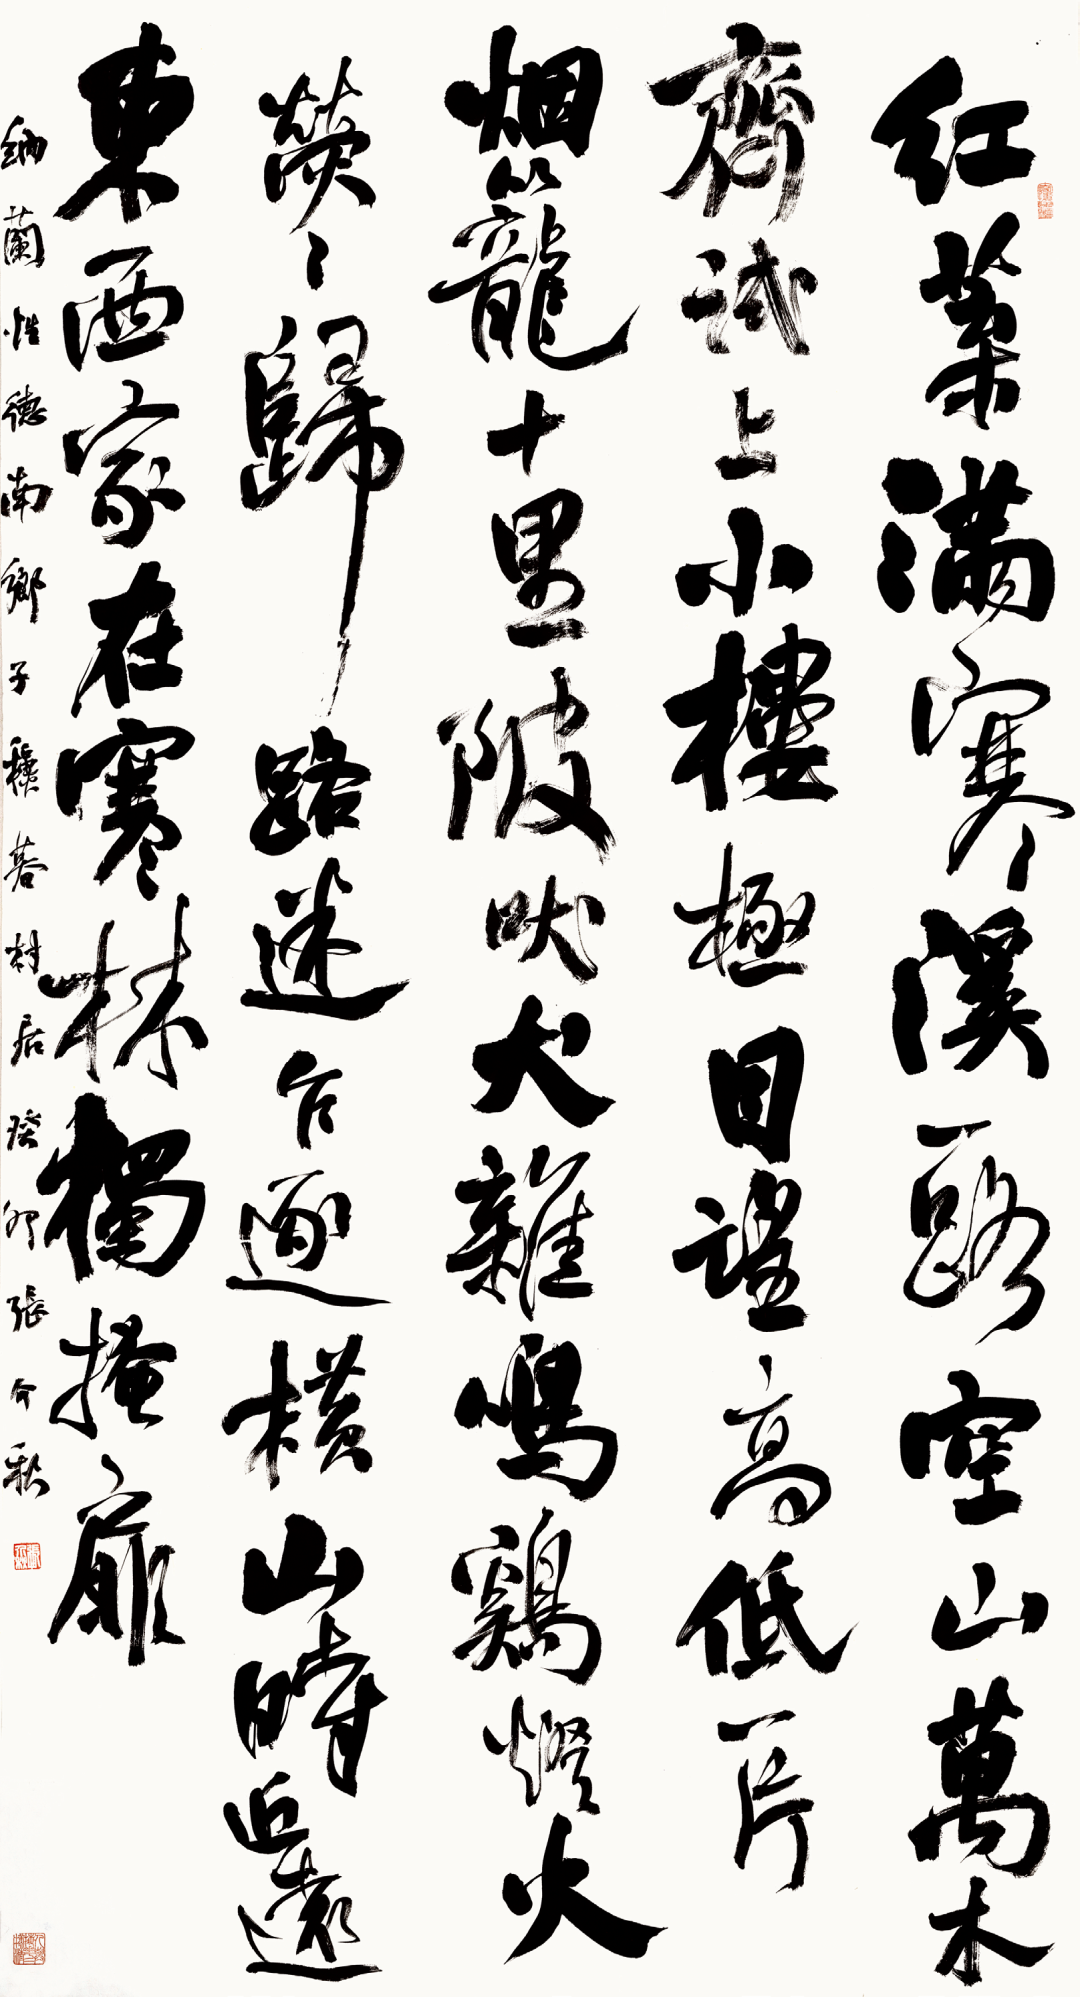 红葉满寒溪一路空山萬木
齊試上小樓極目望高低一片
烟籠十里陂吠犬雜鳴鷄燈火
熒〻歸路迷乍逐横山時近遠
東西家在寒林獨掩扉
納蘭性德南鄉子穐暮村居癸卯張今秋